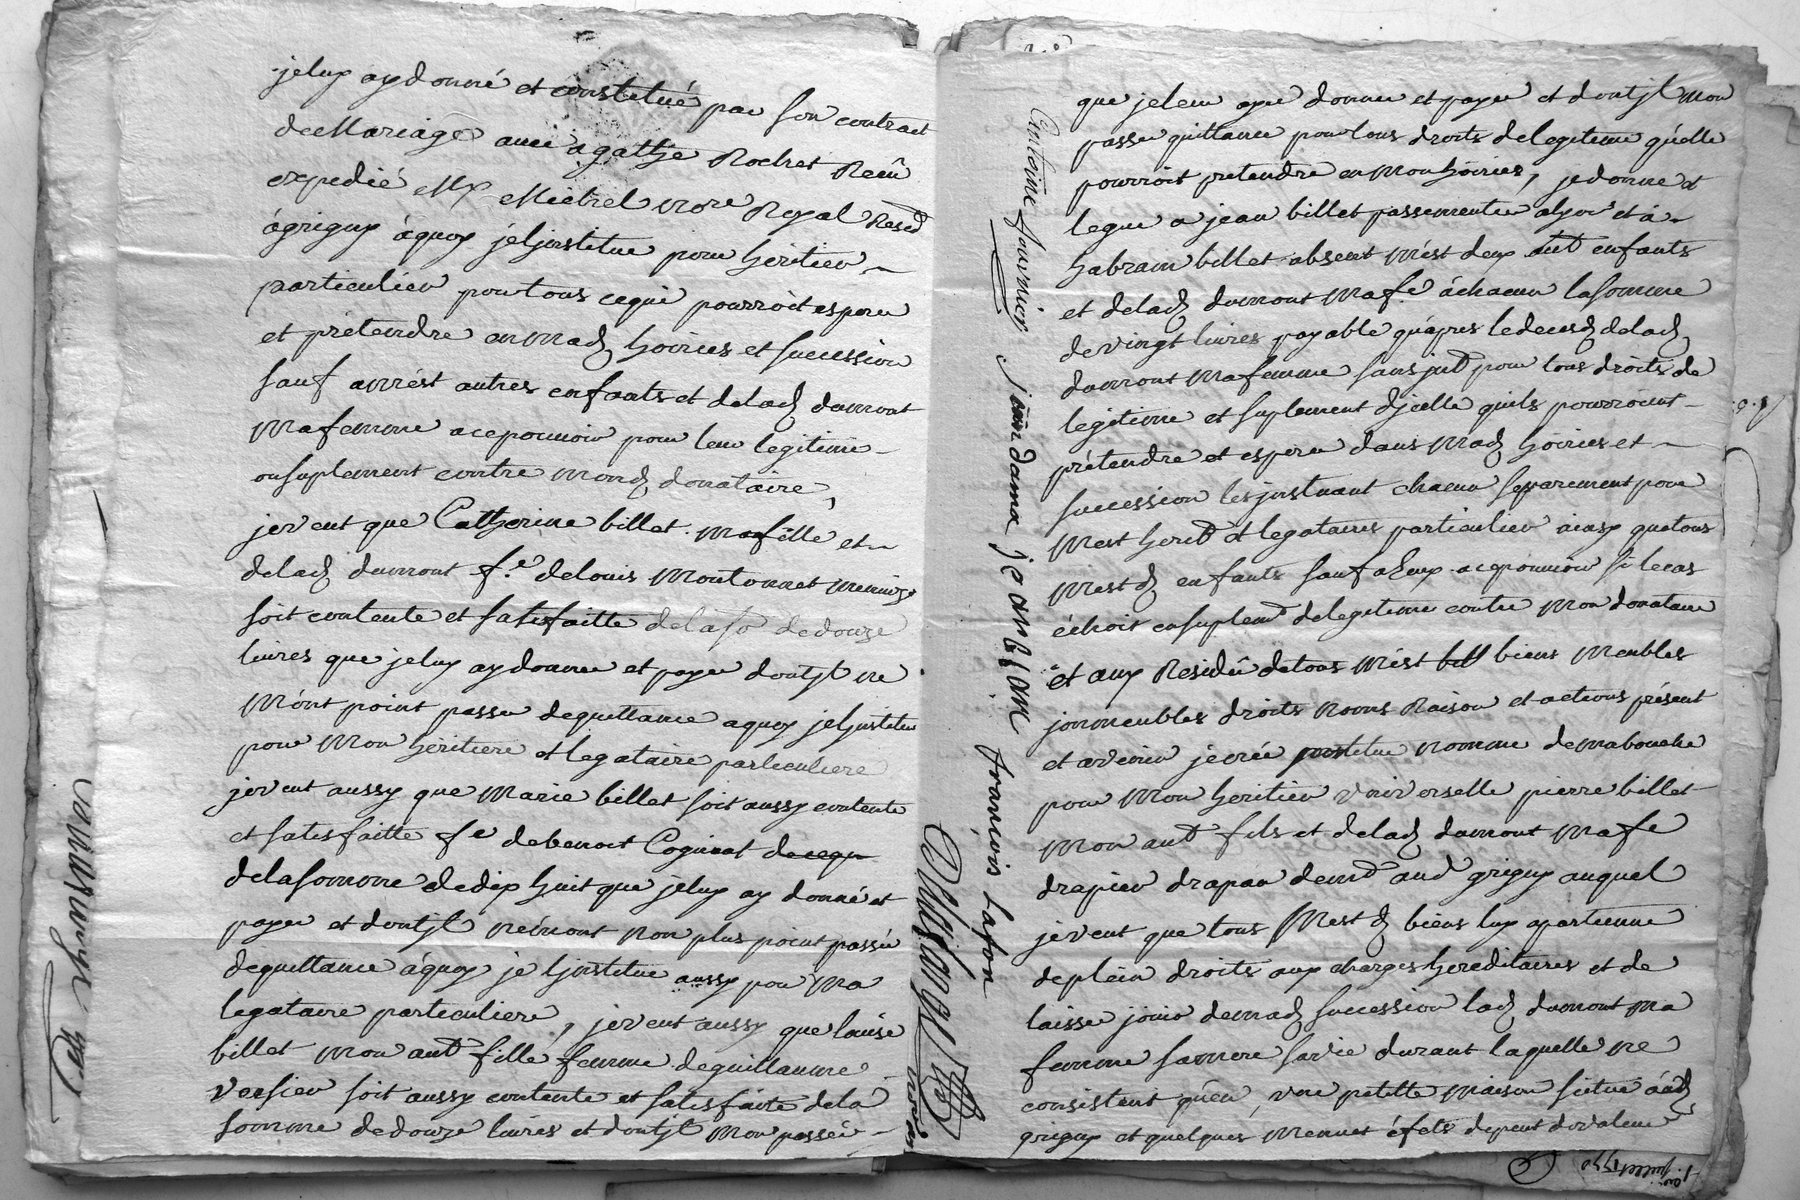 jeluy ay donné et constitué par son contract
de Mariage avec agathe Rochet Receu
expedié Mx Mietrel nore Royal Resed
àgrigny àquoy jeljnstitue pour héritier
particulier pourtous cequi pourroit esperer
et prétendre en mad hoiries et succession
sauf amést autres enfants et delad dumont
ma femme acepouvoir pour leur legitime
ousuplement contre mond donataire,
jeveut que Catherine billet ma fille et
delad dumont f.e delouis Montonnat
soit contente et satisfaitte delaso dedouze
livres que jeluy ay donner et payer dontjl ne
m'ont point passer dequittance aquoy jeljnstitue
pour mon héritiere et legataire particuliere
jeveut aussy que Marie billet soit aussy contente
et satisfaitte fe debenoit Coginat
delasomme dedix huit que jeluy ay donné et
payer et dontjl némont non plus point passée
dequittance àquoy je ljnstitue aussy pour ma
legataire particuliere, jeveut aussy que louise
billet mon aut fille femme deguillaume
versier soit aussy contente et satisfaite dela
somme dedouze livres et dontjl mon passée
que jeleur ayer donner et payer et dontjl mon
passer quittance pour tous droits delegitime quélle
pourroit pretendre en mon hoiries, je donne et
legue a jean billet passementier alyon et à
habraim billet absent mést deux aut enfants
et delad dumont ma fe àchacun lasomme
devingt livres payable quàpres ledecesd delad
dumont ma femme sans jnt pour tous droits de
legitime et suplement djcelle quils pourroient
prétendre et esperer dans mad hoiries et
succession les jnstuant chacun separement pour
mest herit et legataires particulier àceux quetous
mest d enfants sauf aheux acepouvoir si lecas
échoit ensuplemt delegitime contre mon donataire
et aux Residû detous mést bill biens meubles
jmmeubles droits noms Raison et actions présent
et avenir jecrée jnstitue nomme demabouche
pour mon heritier vniverselle pierre billet
mon aut fils et delad dumont ma fe
drapier drapan demt aud grigny auquel
jeveut que tous mest d biens luy apartienne
deplein droits aux charges hereditaires et de
laisser jouir demad succession lad dumont ma
femme samere savie durant laquelle ne
consistent quén, vne petitte maison situé àud
grigny et quelques menuet éfets depeut devaleur
Antoine fournier
jean dama
francois Lafon